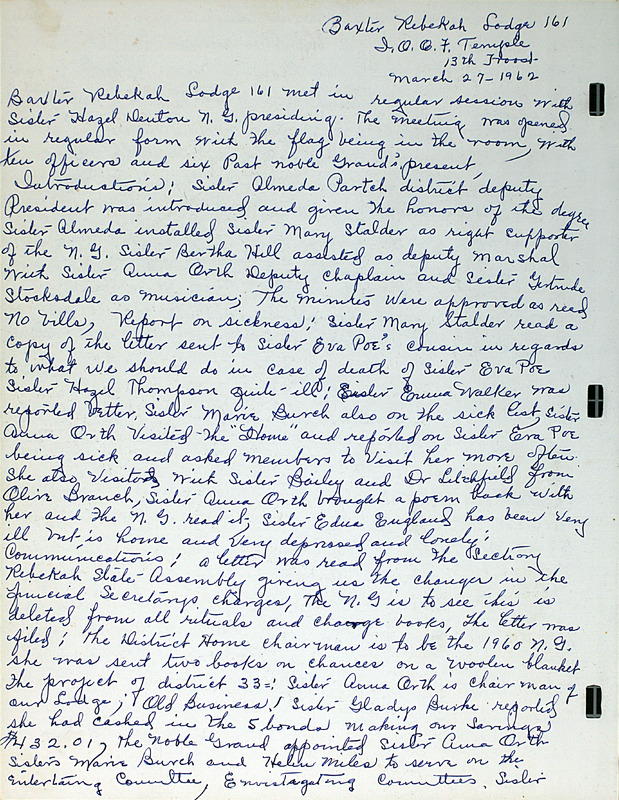 Baxter Rebekah Lodge 161
I.O.O.F. Temple
13th Troost
March 27-1962
Baxter Rebekah Lodge 161 met in regular session with
Sister Hazel Denton N.G. presiding. The meeting was opened
in regular form with the flag being in the room, with
ten officers and six Past noble Grand's present,
Introductions; Sister Almeda Partch district deputy
President was introduced and given the honors of the degree
Sister Almeda installed Sister Mary Stalder as right supporter
of the N.G. Sister Bertha Hill assisted as deputy marshal
with Sister Anna Orth Deputy chaplain and Sister Gertrude
Stocksdale as musician; The minutes were approved as read
No bills, Report on sickness; Sister Mary Stalder read a
copy of the letter sent to Sister Eva Poe's cousin in regards
to what we should do in case of death of Sister Eva Poe
Sister Hazel Thompson quite-ill; Sister Emma Walker was
reported better, Sister Marie Burch also on the sick list, Sister
Anna Orth visited the Home and reported on Sister Eva Poe
being sick and asked members to visit her more often.
She also visited with Sister Bailey and Dr Litchfield from
Olive Branch, Sister Anna Orth brought a poem back with
her and the N.G. read it, Sister Edna England has been very
ill but is home and very depressed and lonely;
Communications; a letter was read from the Section
Rebekah State Assembly giving us the changer in the
Finicial Secretarys charges, The N.G is to see this is
deleted from all rituals and charge books, The letter was
filed; The District Home chairman is to be the 1960 N.G.
she was sent two books on chances on a woolen blanket
the project of district 33=; Sister Anna Orth is chairman of
our Lodge; Old Business; Sister Gladys Burke reported
she had cashed in the 5 bonds making our Savings
$432.01, The Noble Grand appointed Sister Anna Orth
Sisters Marie Burch and Helen Miles to serve on the
entertaing Committee, Envistagating Committee, Sister